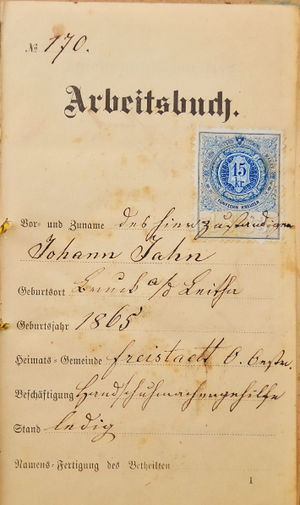 № 170.
Arbeitsbuch.
15
kr
FÜNFZEHN KREUZER
Vor- und Zuname des hier zuständigen
Johann Jahn
Geburtsort Bruck a/d Leitha
Geburtsjahr 1865
Heimats-Gemeinde Freistadt O. Oestr.
Beschäftigung Handschuhmachergehilfe
Stand ledig
Namens-Fertigung des Betheilten
1